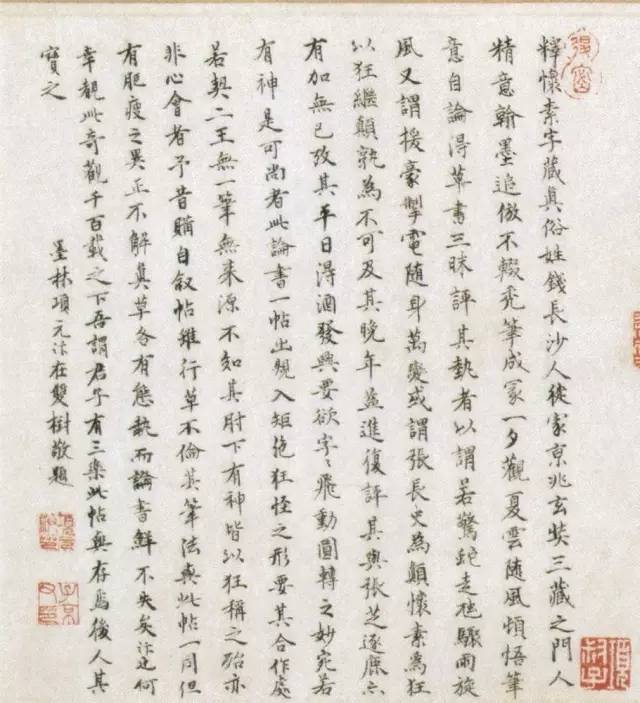 釋懷素字藏真俗姓錢長沙人徙家京兆玄奘三藏之門人
精意翰墨追倣不輟禿筆成冢一夕觀夏雲隨風頓悟筆
意自論得草書三昧評其執者以謂若驚蛇走虺驟雨旋
風又謂援毫掣電隨身萬變或謂張長史為顛懷素為狂
以狂繼顛孰為不可及其晚年益進復評其與張芝逐鹿亦
有加無已攷其平日得酒發興要欲字〻飛動圓轉之妙宛若
有神是可尚者此論書一帖出規入矩絶狂怪之形要其合作處
若契二王無一筆無來源不知其肘下有神皆以狂稱之殆亦
非心會者予昔購自敘帖雖行草不倫其筆法與此帖一同但
有肥瘦之異正不解真草各有態執而論書鮮不失矣汴何
幸覩此奇觀千百載之下吾謂君子有三樂此帖與存焉後人其
寶之
墨林項元汴在雙樹敬題